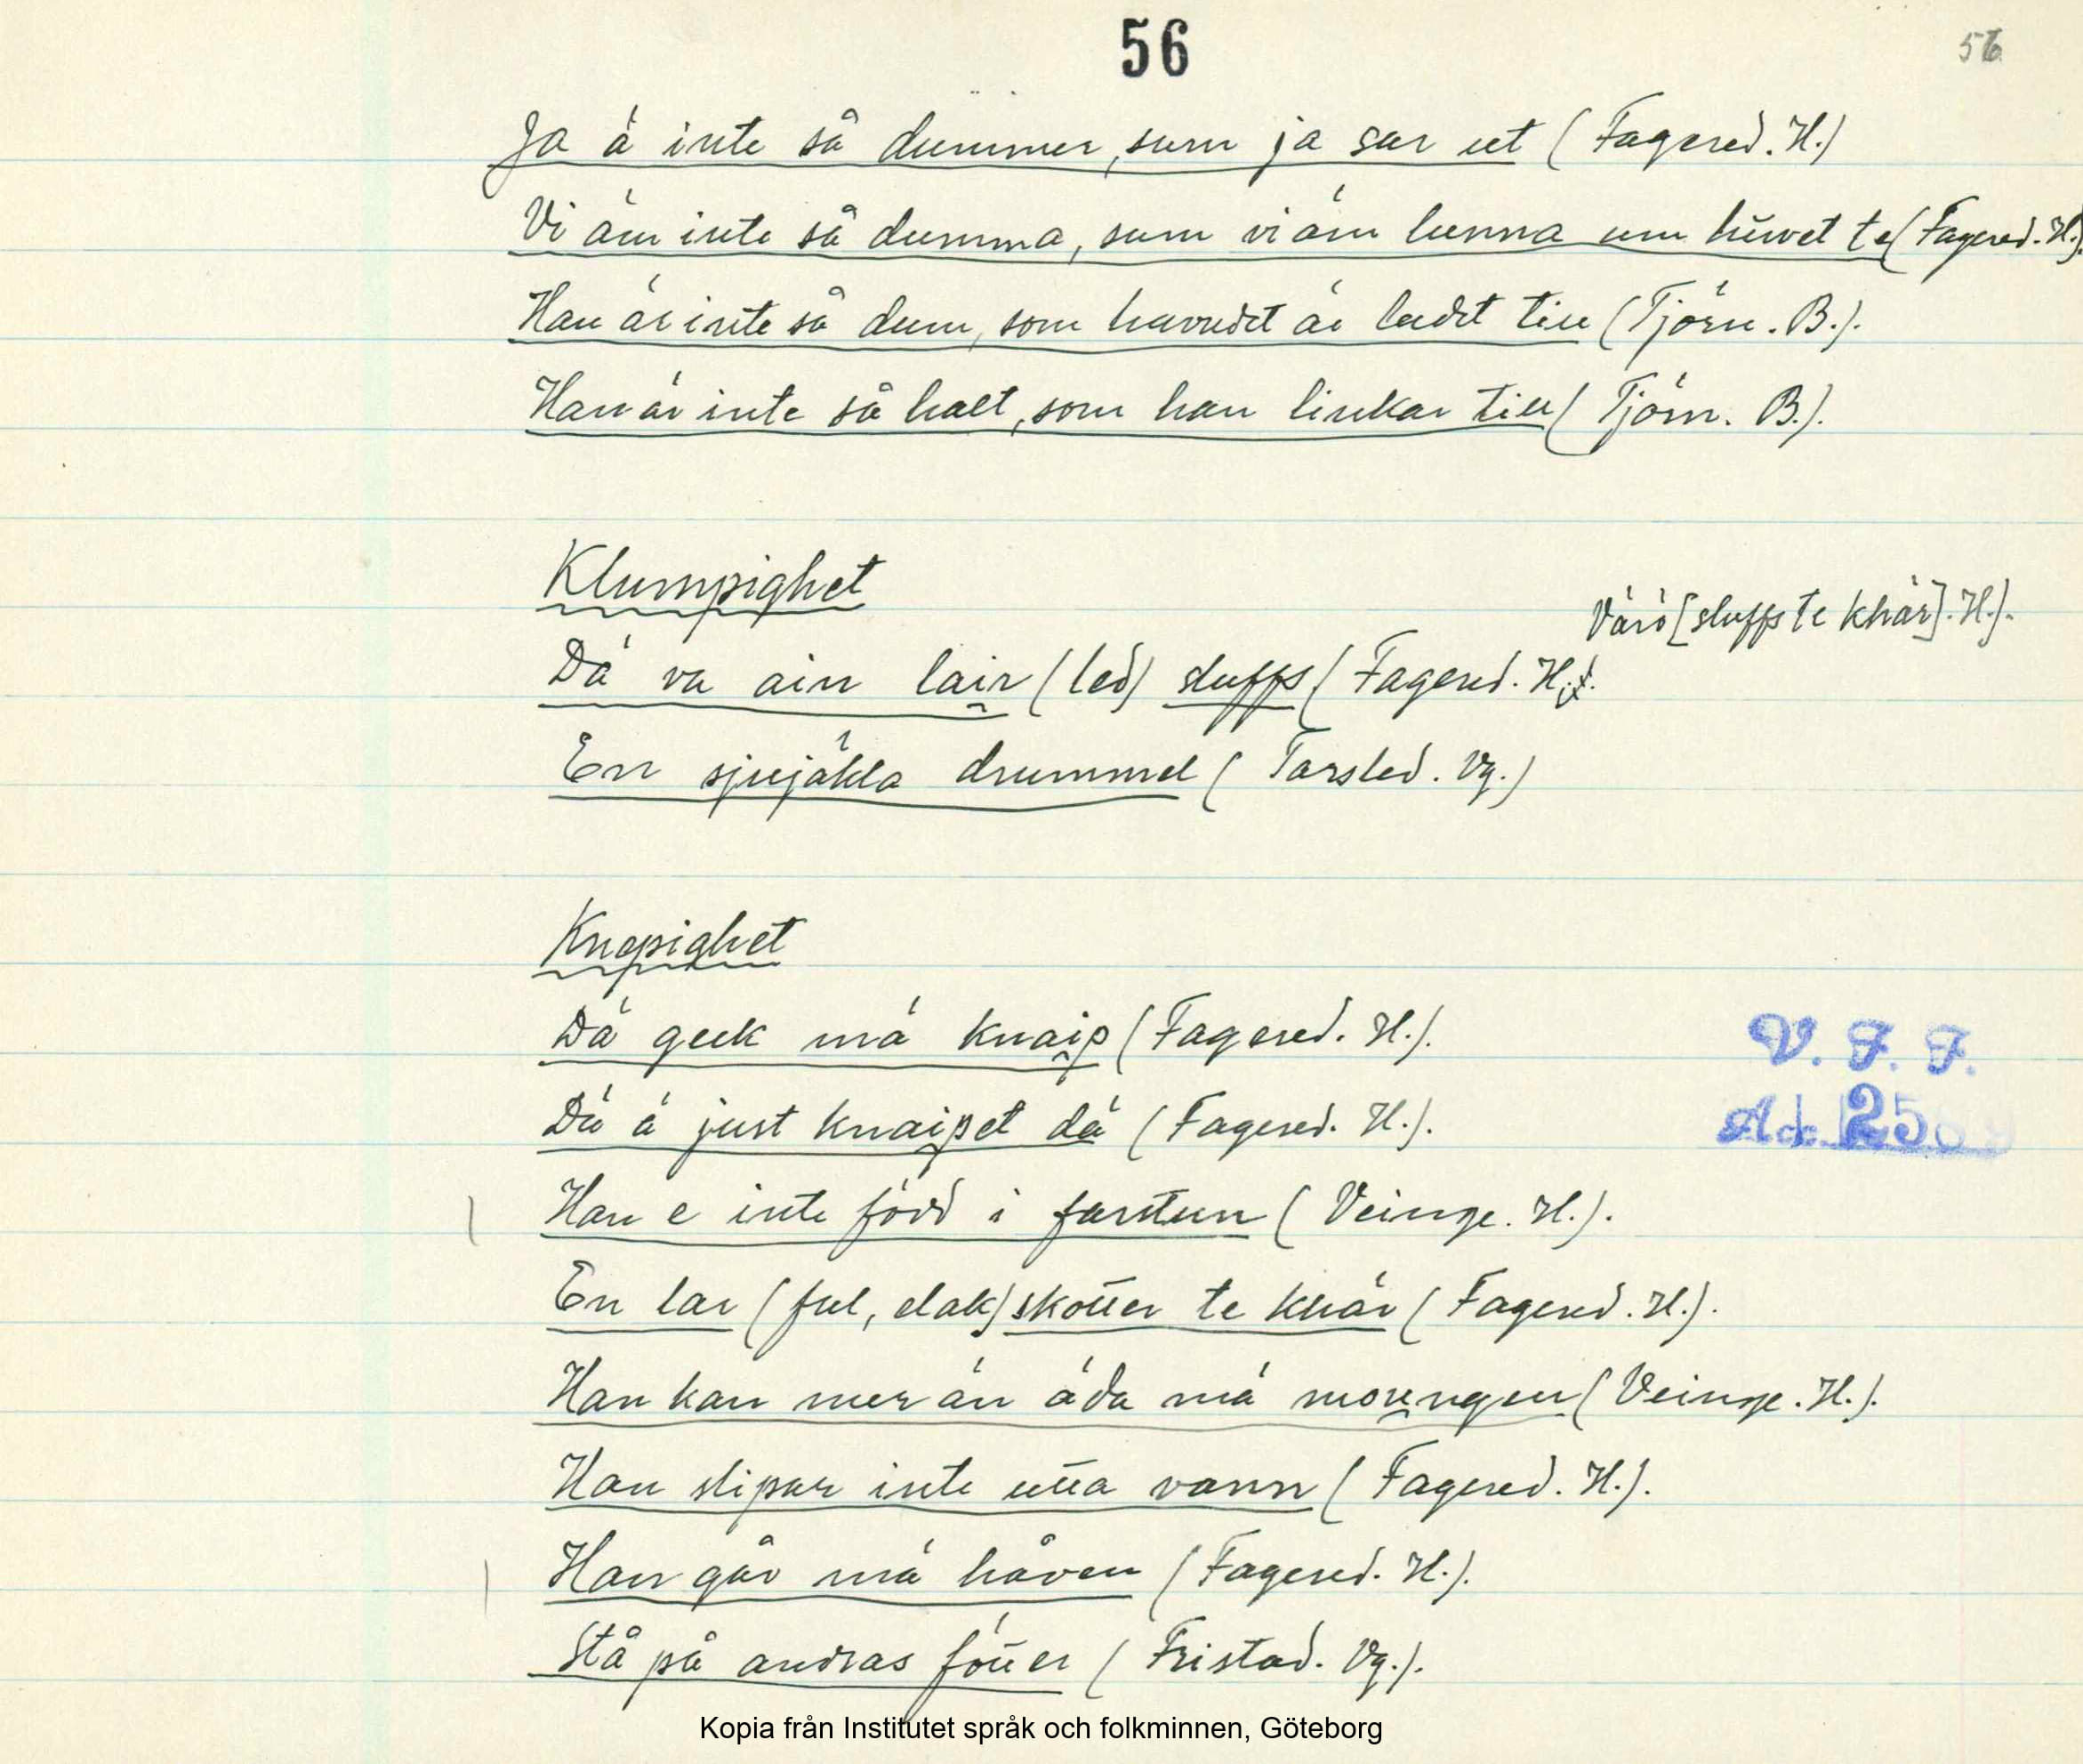 56
56
Ja ä inte så dummer, sum ja sar ut (Fagered. H.)
Vi äm inte så dumma, sum vi äm lunna um huvet te (Fagered. H.).
Han är inte så dum, som huvudet är ludet till (Tjörn. B.).
Han är inte så halt, som han linkar till (Tjörn. B.).
Klumpighet
Värö [sluffs te khär]. H.).
Dä va äin lair (led) sluffs (Fagered. H.;
En sjujäkla drummel (Tarsled. Vg.)
Knepighet
Dä geck mä knaip (Fagered. H.).
Dä ä just knaipet dä (Fagered. H.).
Han e inte född i farstun (Veinge. H.).
En lar (ful, elak) skotter te khär (Fagered. H.).
Han kan mer än äda mä mongen (Veinge. H.).
Han slipar inte utta vann (Fagered. H.).
Han går mä håven (Fagered. H.).
Stå på andras fötter (Fristad. Vg.).
V. F. F.
Ack. 25
Kopia från Institutet språk och folkminnen, Göteborg